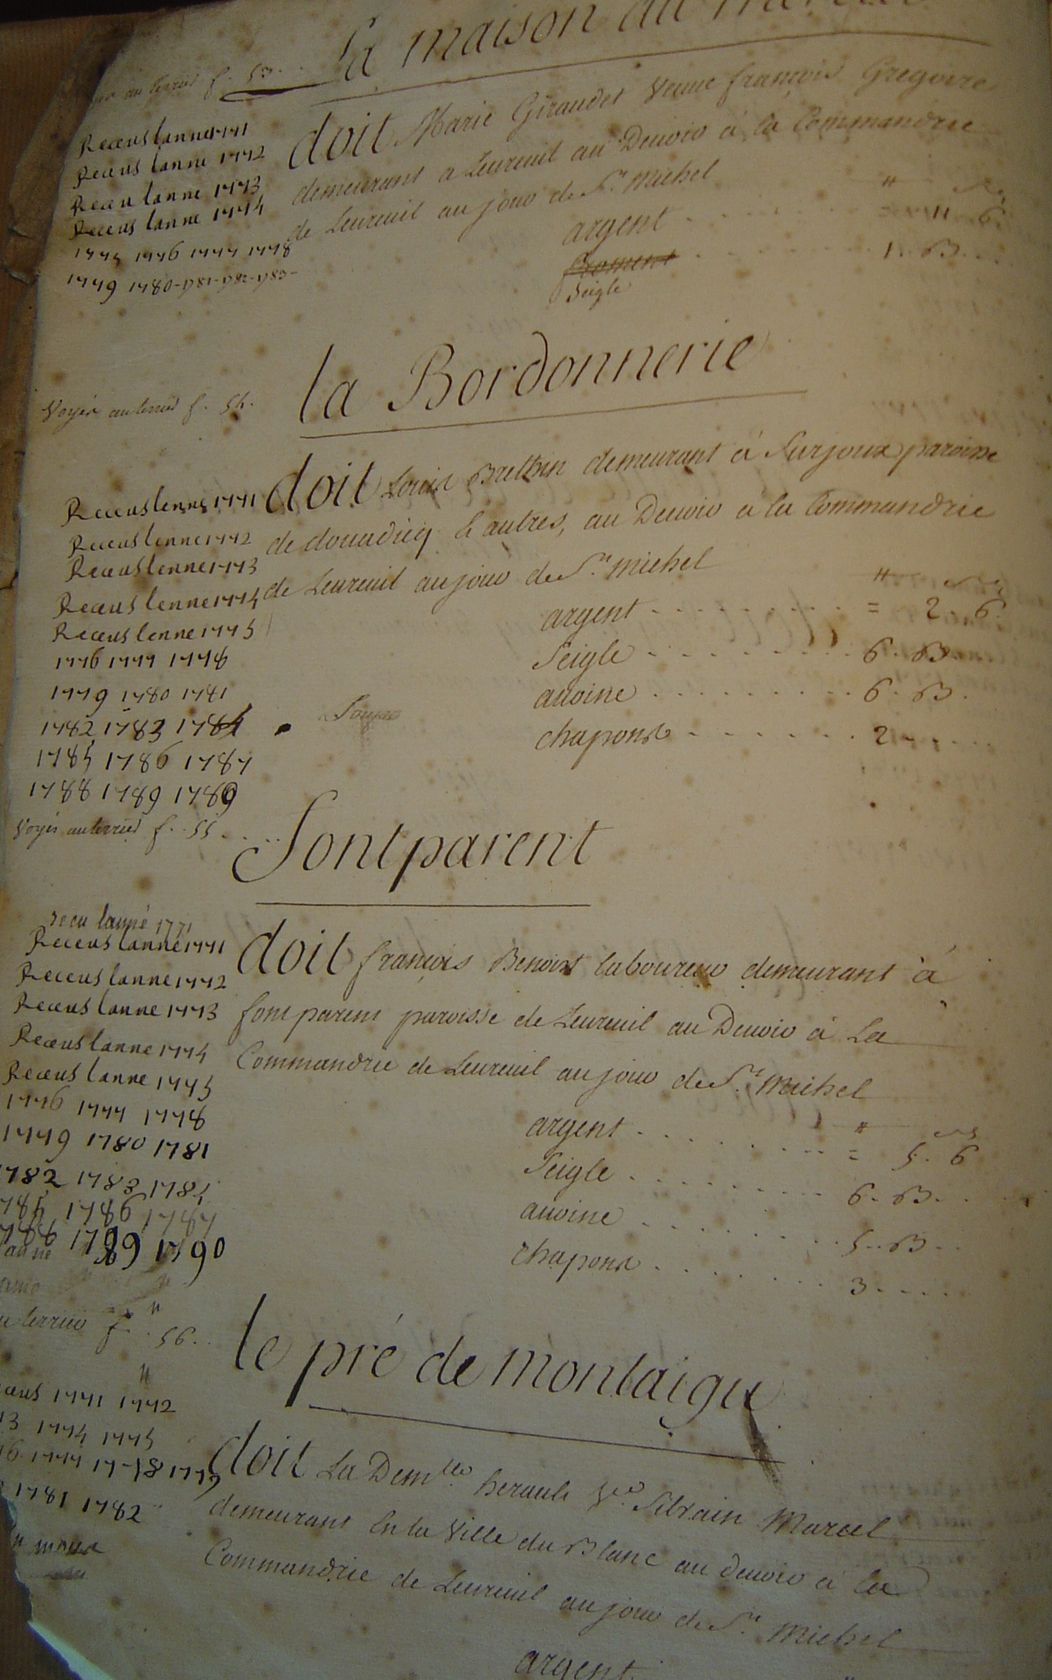 la maison du
au terrier f. 53.
Receus lanne 1771
Receus lanne 1772
Receu lanne 1773
Receus lanne 1774
1775 1776 1777 1778
1779 1780-1781-1782-1783-
doit Marie Giraudet Veuve françois Gregoire
demeurant a Leureuil au Deuoir a la Commandrie
de Leureuil au jour de St. Michel
argent = " 6
froment 1. B.
Seigle
la Bordonnerie
Voyés au terrier f. 54.
Receus lenne 1771
Receus lenne 1772
Receus lenne 1773
Receus lenne 1774
Receus lenne 1775
1776 1777 1778
1779 1780 1781
1782 1783 1784
1785 1786 1787
1788 1789 1789
doit Louis Brethin demeurant á Surjoux paroisse
de douadicq & autres, au Deuoir a la Commandrie
de Leureuil au jour de St. Michel
argent = 2. 6.
Seigle 6. B.
auoine 6. B.
chapons 2
Voyés au terrier f. 55
fontparent
receu lanné 1771
Receus lanne 1771
Receus lanne 1772
Receus lanne 1773
Receus lanne 1774
Receus lanne 1775
1776 1777 1778
1779 1780 1781
1782 1783 1784
1785 1786 1787
1788 1789 1790
doit françois Benoist laboureur demeurant á
fontparent paroisse de Leureuil au Deuoir á La
Commandrie de Leureuil au jour de St. Michel
argent = 5. 6
Seigle 6. B.
auoine 5. B
chapons 3
au terrier f. 56.
le pré de montaigu
1771 1772
73 1774 1775
76 1777 1778 1779
1781 1782
doit La Demlle. herault Ve. Silvain Marcel
demeurant En la Ville du Blanc au deuoir á la
Commandrie de Leureuil au jour de St. Michel
argent